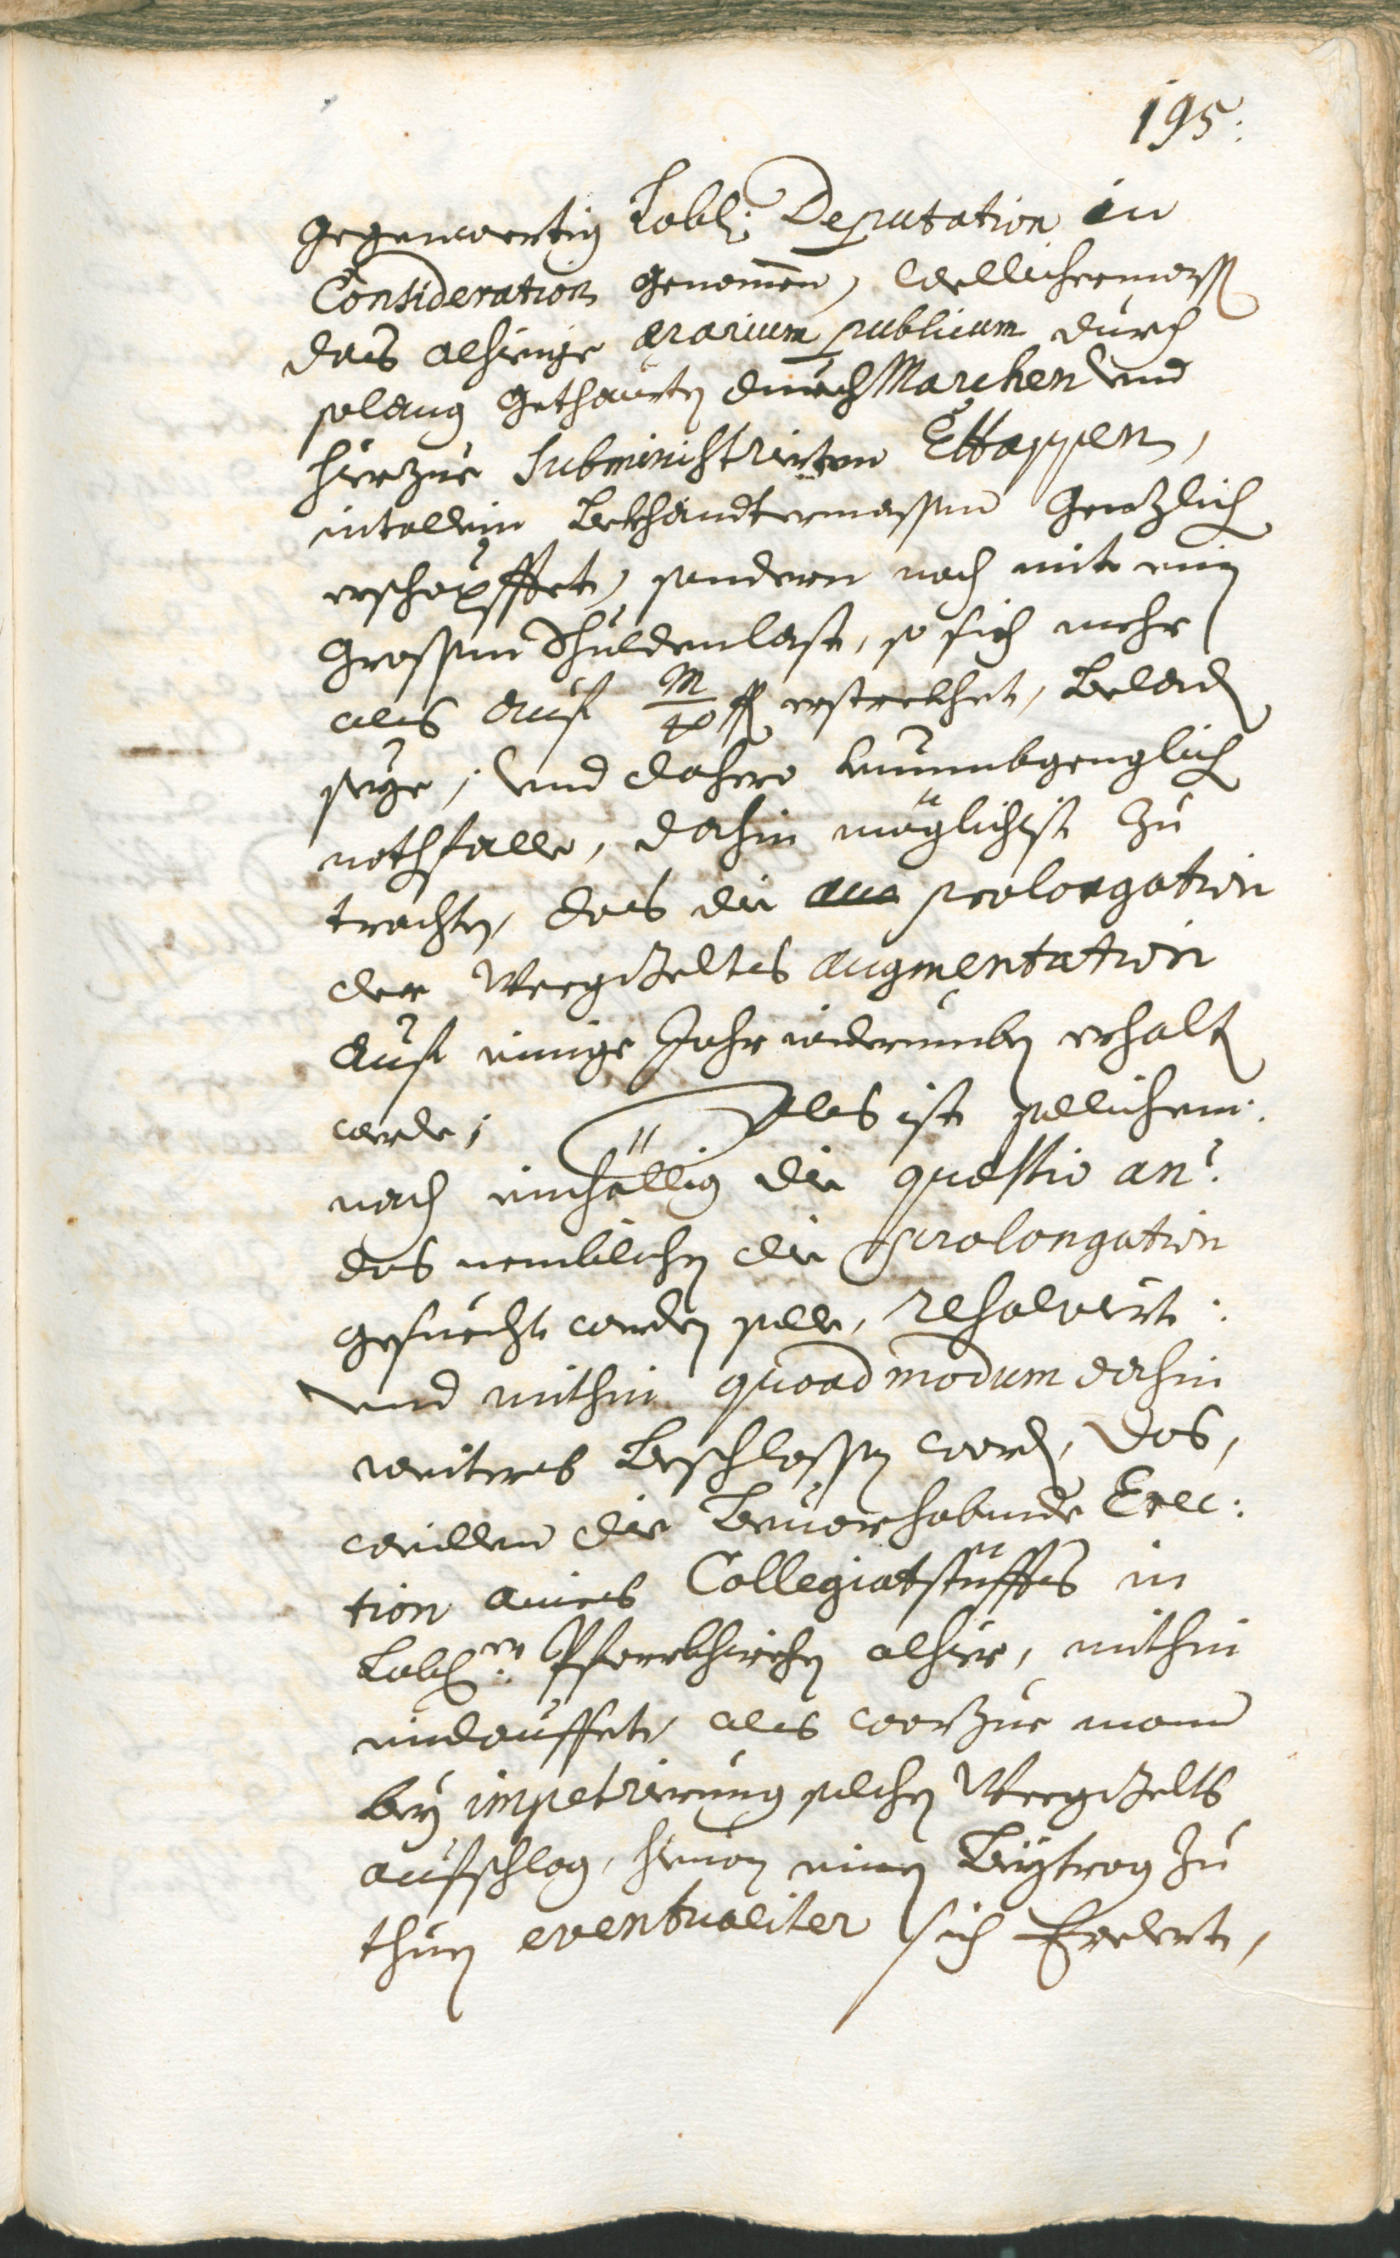 195.
gegenwertig Lobl: Deputation in
Consideration genomen, wellichermassen
das alhieige ærarium publicum durch
solang gethaurten durch Marchen und
hierzue Subministrierten Ettappen,
nit allein bekhandtermassen gentzlich
erschöpffet, sondern noch mit einer
grossen Schuldenlast, so sich mehr
als auf M/40 fl erstrekhet, beladen
seye; und dahero unumbgenglich
nothfalle, dahin möglichist zu
trachten, das die prolongation
der Weegzeltes augmentation
auf einige Jahr widerumben erhalten
werde; Als ist sellichem:
nach einhällig die quæstio an?
das nemblichen die prolongation
gesuecht werden solle, resolviert:
und mithin quoad modum dahin
weiteres beschlossen worden, das,
weillen die bevorhabende Erec:
tion aines Collegiatstüffts in
Lobl:en Pfarrkhirchen alhier, mithin
eindauffet, als worzue mann
bey impetrierung solchen Weegzelts
aufschlag, hievon einen Beytrag zu
thuen eventualiter sich Erclert,